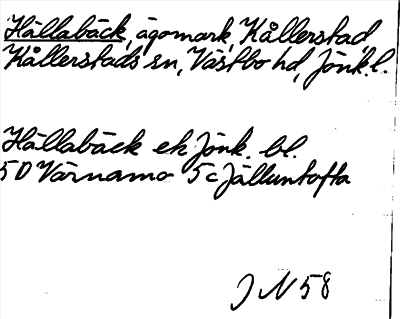 Hällabäck, ägomark, Kållerstad
Kållerstads sn, Västbo hd, Jönk.l.
Hällabäck ek Jönk. bl.
5D Värnamo 5c Jälluntofta
J N 58